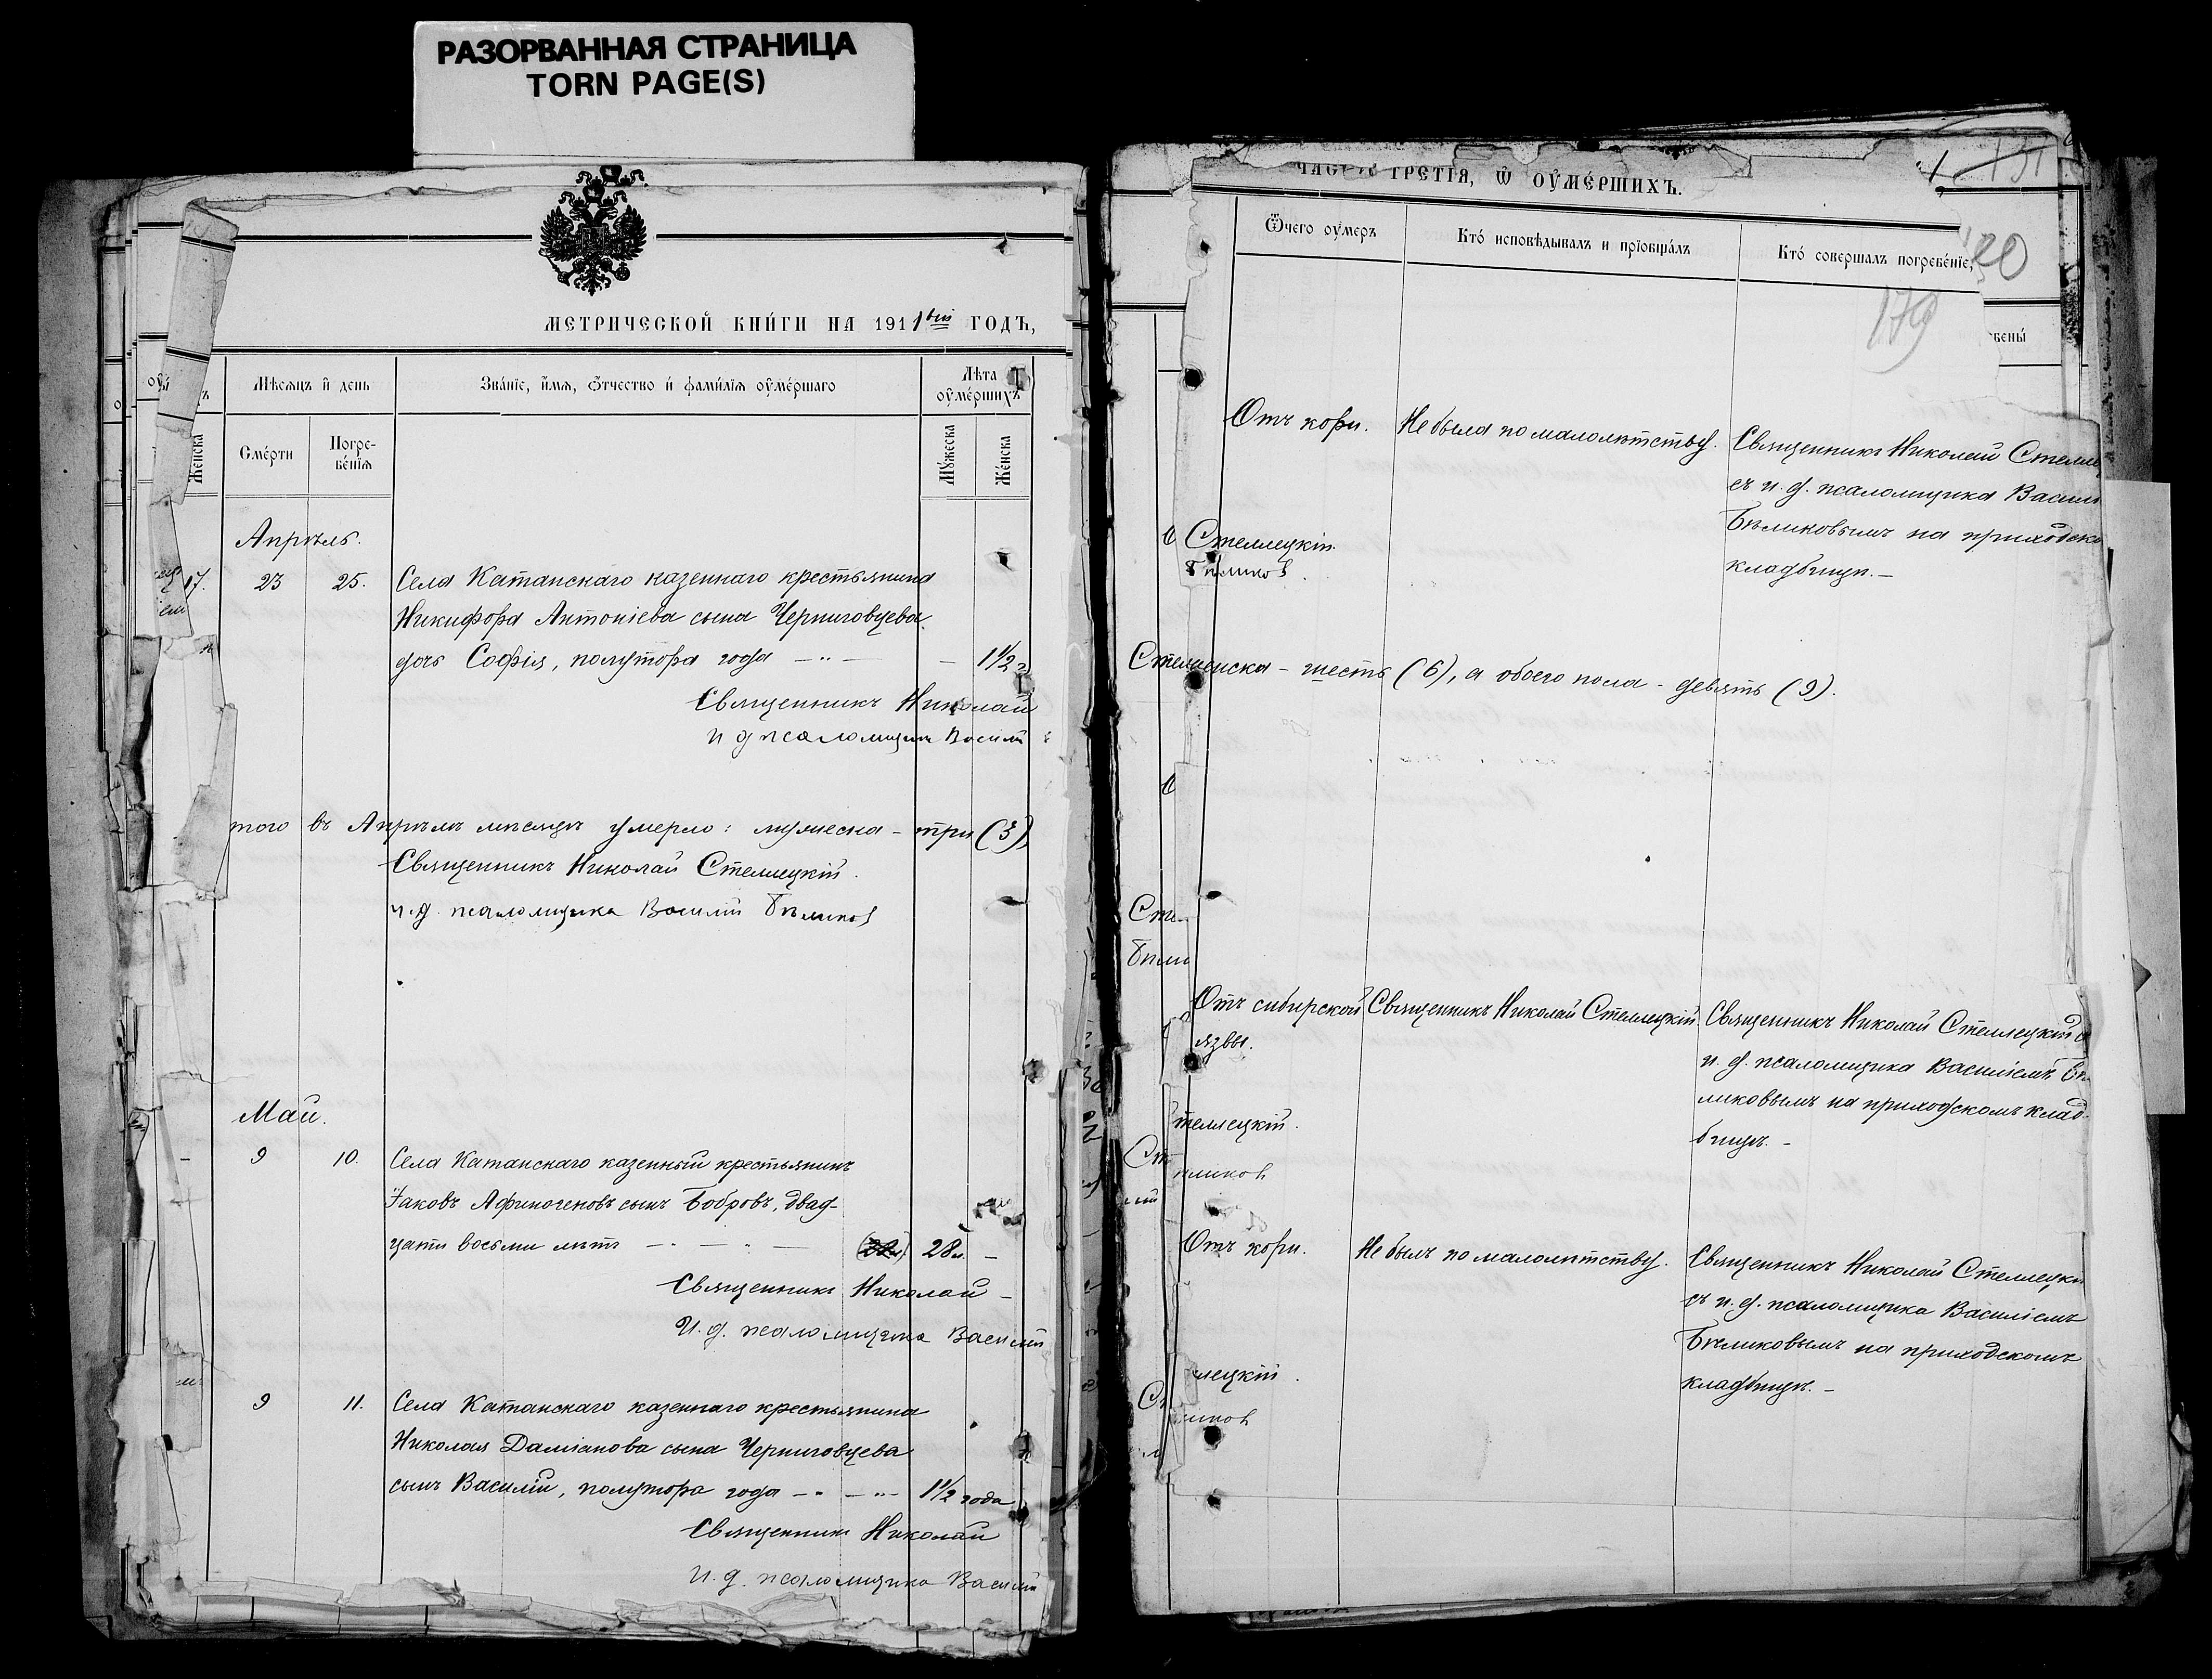 РАЗОРВАННАЯ СТРАНИЦА
TORN PAGE(S)
МЕТРИЧЕСКОЙ КНИ́ГИ НА 1911 ГОДЪ,
Мѣсяцъ и день
Зва́нїе, и҆́мѧ, ѻ҆́тчество и҆ фами́лїѧ оу҆ме́ршаго
Лѣта оу҆ме́ршихъ
Же́нска
Сме́рти
Погре-
бе́нїѧ
Мꙋ́жеска
Же́нска
Апрѣль.
17.
23
25.
Села Катанскаго казеннаго крестьянина
Никифора Антоніева сына Черниговцева
дочь Софія, полутора года — „ —
—
1 1/2 г
Священникъ Николай
и д псаломщика Василій
того въ Апрѣлѣ мѣсяцѣ умерло: мужеска - три (3),
Священникъ Николай Стеллецкій.
и. д. псаломщика Василій Бѣликов
Май.
—
9
10.
Села Катанскаго казенный крестьянинъ
Іаковъ Афиногеновъ сынъ Бобровъ, двад-
цати восьми лѣтъ
28 л.
—
Священникъ Николай
И. д. псаломщика Василій
9
11.
Села Катанскаго казеннаго крестьянина
Николая Даміанова сына Черниговцева
сынъ Василій, полутора года — „ — „ —
1 1/2 года
Священникъ Николай
И. д. псаломщика Василій
ЧАСТЬ ТРЕТІЯ, Ѡ ОУ҆МЕ́РШИХЪ.
Ѿчего оу҆́меръ
Кто́ исповѣ́дывалъ и прїобща́лъ
Кто́ совершалъ погребе́нїе,
20
179
бены́
Отъ кори.
Не была по малолѣтству.
Священникъ Николай Стелле
съ и. д. псаломщика Васил
Бѣликовымъ на приходско
кладбищѣ. —
Стеллецкій.
Бѣликов.
женска - шесть (6), а обоего пола - девять (9).
Сте
Бѣли
Отъ сибирской
язвы.
Священникъ Николай Стеллецкій.
Священникъ Николай Стеллецкій с
и. д. псаломщика Василіемъ Бѣ
ликовымъ на приходскомъ клад-
бищѣ. -
теллецкій.
ѣликов
Отъ кори.
Не былъ по малолѣтству.
Священникъ Николай Стеллецкі
съ и. д. псаломщика Василіемъ
Бѣликовымъ на приходскомъ
кладбищѣ. -
лецкій.
ликов